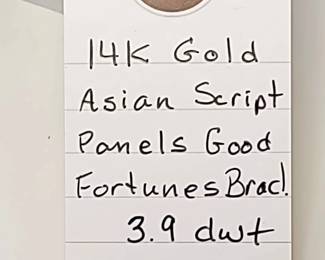 14K Gold
Asian Script
Panels Good
Fortunes Brac!.
3.9 dwt